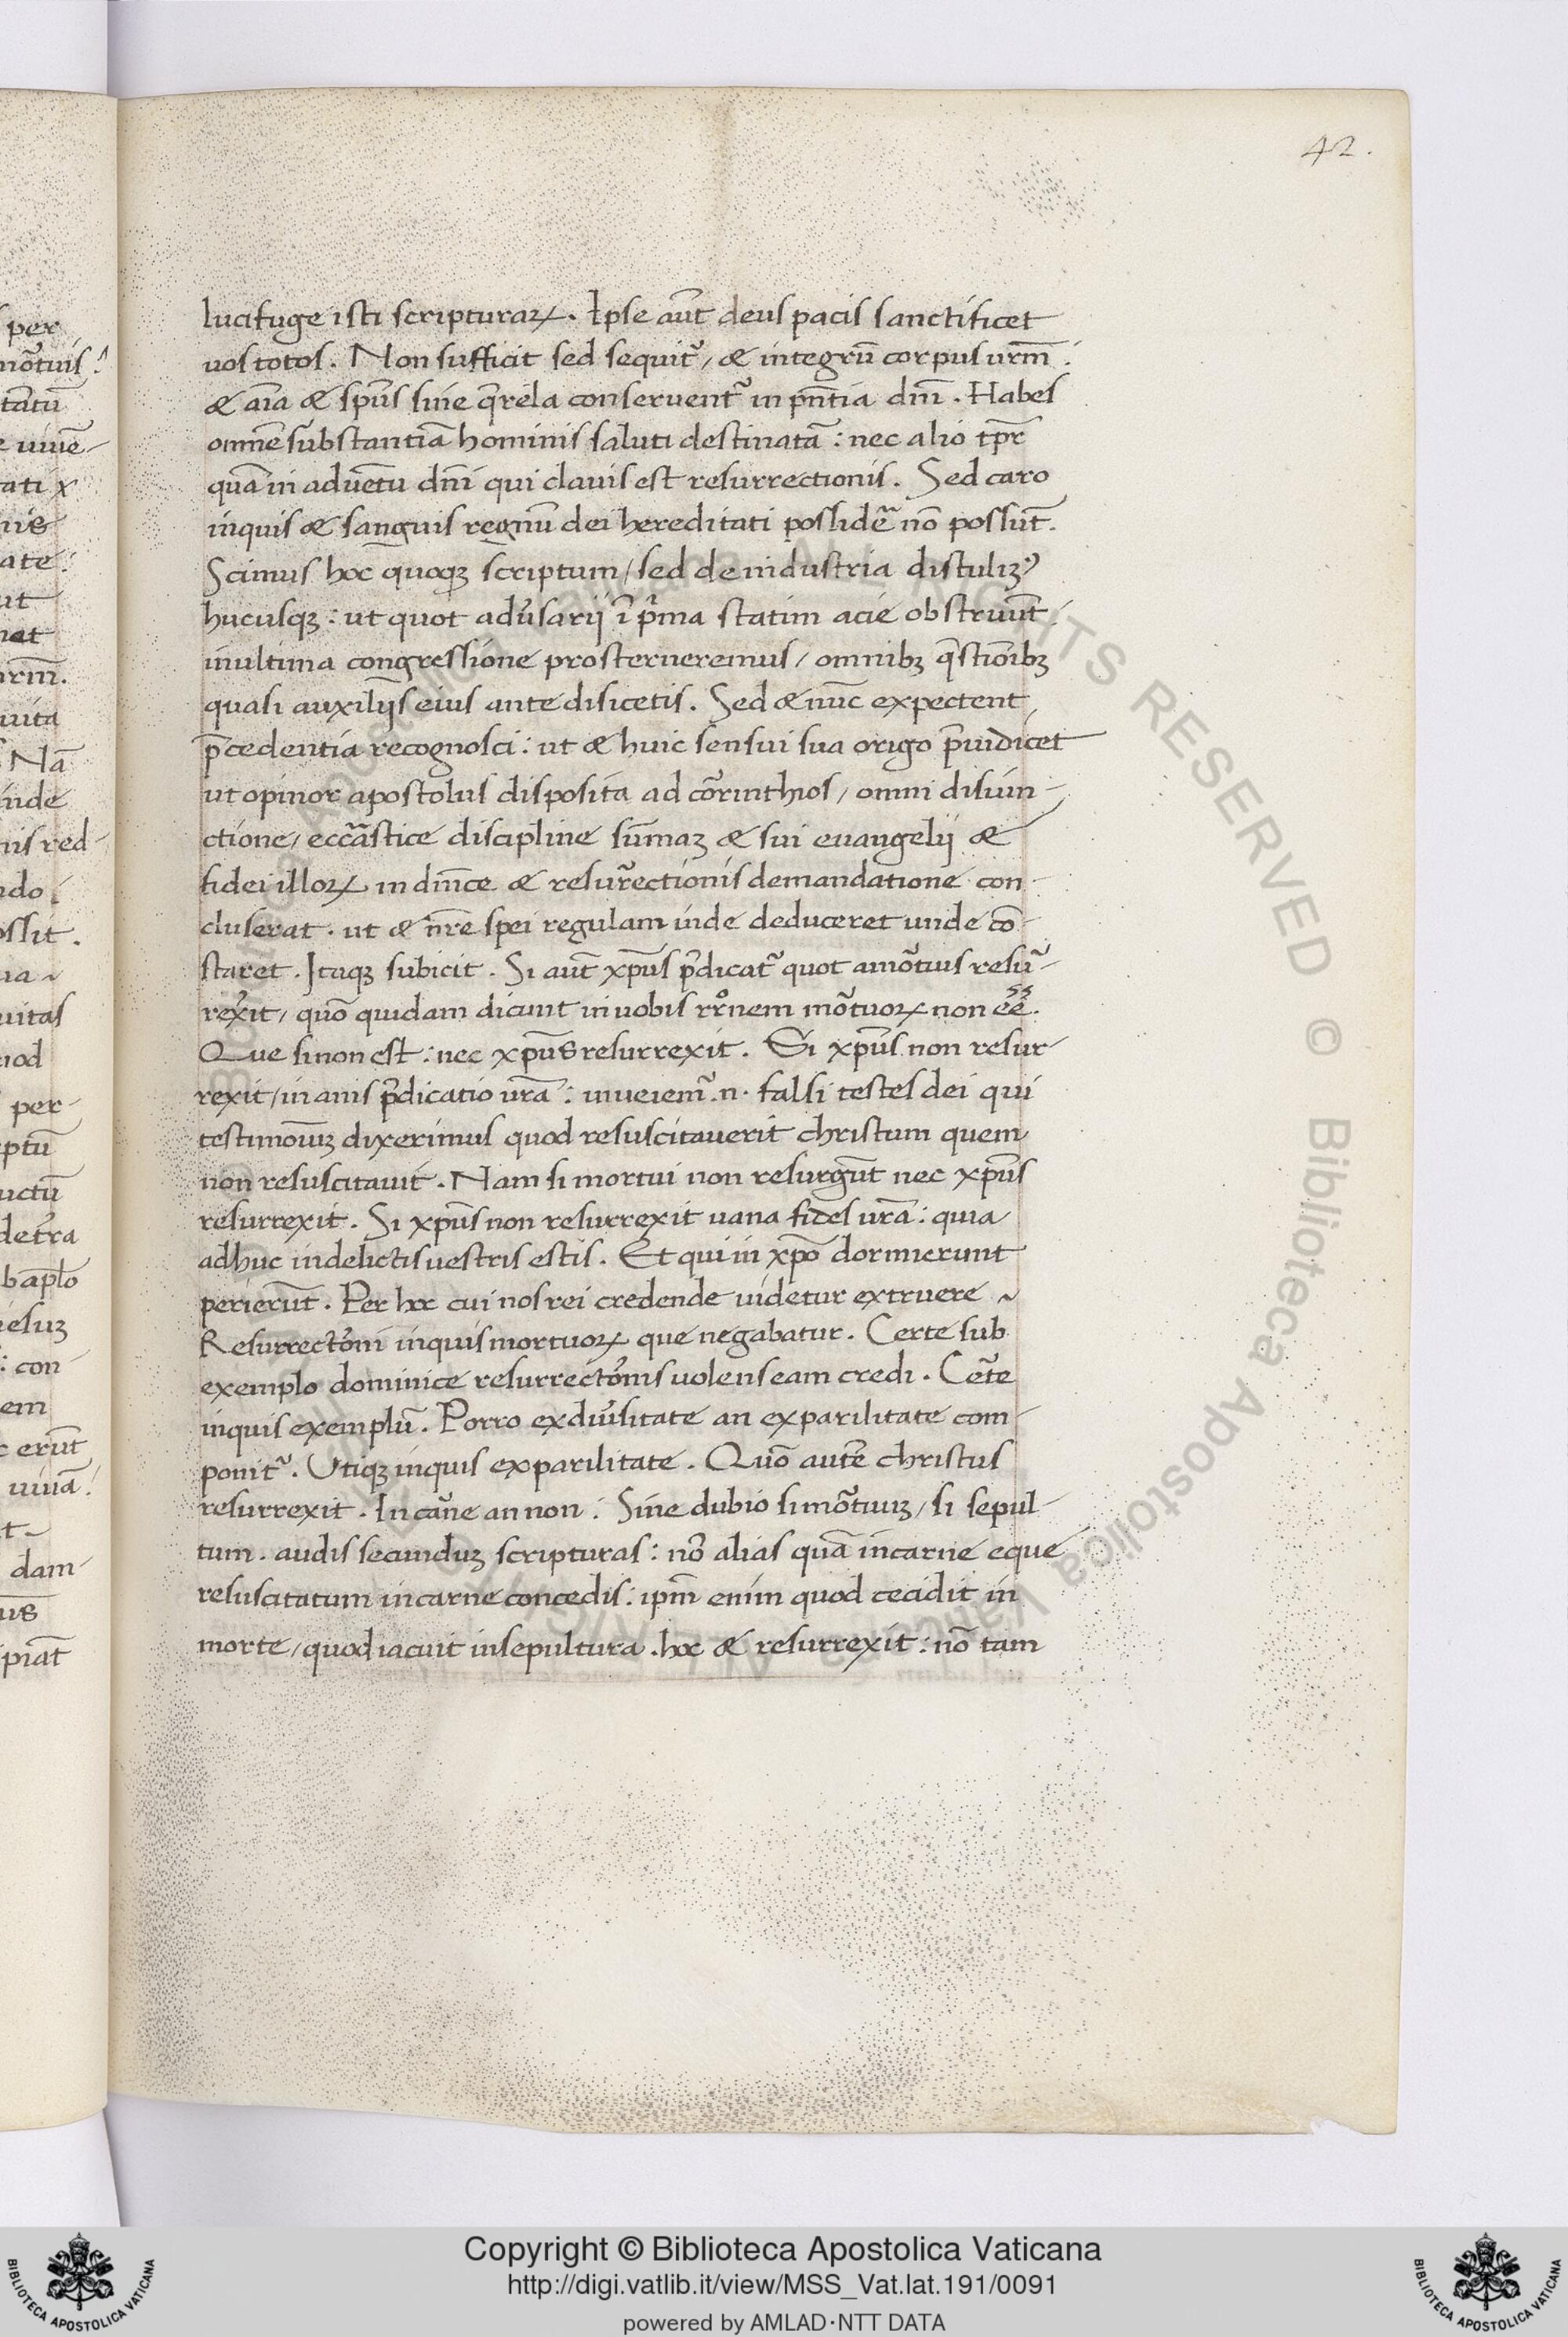 42.
lucifuge isti scripturaꝝ. Ipse aūt deus pacis sanctificet
uos totos. Non sufficit sed sequit᷑, & integrū corpus urm̄:
& aīa & spūs sine q̄rela conseruent᷑ in pn̄tia dnī. Habes
omnē substantiā hominis saluti destinatā: nec alio tp̄r
quā in aduētu dnī qui clauis est resurrectionis. Sed caro
inquis & sanguis regnū dei hereditati possidē᷑ nō possūt.
Scimus hoc quoqꝫ scriptum, sed de industria distuliꝫ᷒
hucusqꝫ: ut quot adūsarij ī p̄ma statim acie obstruūt:
inultima congressione prosterneremus, omnibꝫ q̄stionībꝫ
quasi auxilijs eius ante disicetis. Sed & nūc expectent,
p̄cedentia recognosci: ut & huic sensui sua origo p̄iudicet
ut opinor apostolus disposita ad cōrinthios, omni disiun-
ctione, ecclāstice discipline sūmaꝫ & sui euangelij &
fidei illoꝝ in dnīce & resur᷑ectionis demandatione con-
cluserat. ut & nr̄e spei regulam inde deduceret unde cō-
staret. Itaqꝫ subicit. Si aūt xp̄us p̄dicat᷑ quot amōtuis resu᷑-
rex̄it, quō quidam dicunt in uobis rr̊nem mōtuoꝝ non eē.
ss
Que si non est: nec xp̄us resurrexit. Si xp̄us non resur-
rexit, in anis p̄dicatio urā: inueiem᷑ .n. falsi testes dei qui
testimoīuꝫ dixerimus quod resuscitauerit christum quem
non resuscitauit. Nam si mortui non resurgūt nec xp̄us
resurrexit. Si xp̄us non resurrexit uana fides urā: quia
adhuc indelictis uestris estis. Et qui in xp̄o dormierunt
perierūt. Per hoc cui nos rei credende uidetur extruere ~
Resurrectōni inquis mortuoꝝ que negabatur. Certe sub
exemplo dominice resurrectōnis uolens eam credi. Cēte
inquis exemplū. Porro ex diūsitate an ex parilitate com-
ponit᷑. Utiqꝫ inquis ex parilitate. Quō autē christus
resurrexit. In cāne an non: Sine dubio si mōtuuꝫ, si sepul-
tum. audis secunduꝫ scripturas: nō alias quā incarne eque
resuscitatum in carne concedis: ipm̄ enim quod cecidit in
morte, quod iacuit insepultura. hoc & resurrexit: nō tam
per
mōtuis:
tātū
uiuē-
tati x
nis
ate:
ut
urm̄.
uita
Nā
inde
nis red-
ndo
ossit.
uitas
per-
eptū
uctū
bap̄lo
: con-
em
erūt
uiuā:
dam-
us
Copyright © Biblioteca Apostolica Vaticana
http://digi.vatlib.it/view/MSS_Vat.lat.191/0091
powered by AMLAD·NTT DATA
BIBLIOTECA APOSTOLICA VATICANA
BIBLIOTECA APOSTOLICA VATICANA
© Biblioteca Apostolica Vaticana ALL RIGHTS RESERVED © Biblioteca Apostolica Vaticana ALL RIGHTS RESERVED